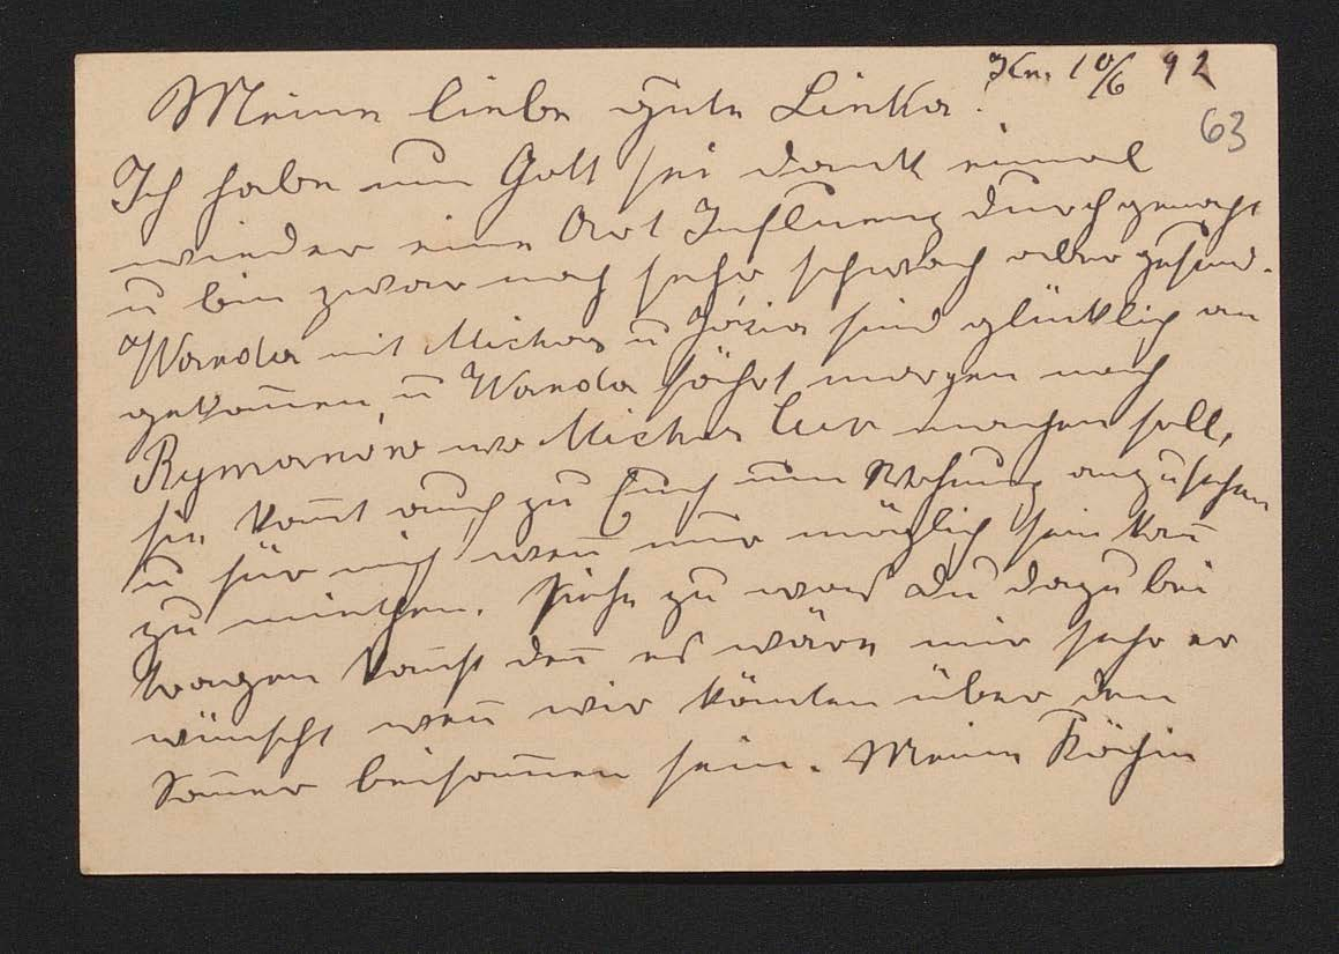 Kr. 10/6 92
63
Meine liebe gute Linka!
Ich habe nun Gott sei dankk einmal
wieder eine Art Influenz durchgemacht
u bin zwar noch sehr schwach aber gesund.
Wanda mit Michas u Józia sind glücklich an
gekom̄en, u Wanda fährt morgen nach
Rymanów wo Michas Cur machen soll,
sie kom̄t auch zu Euch um Wohnung anzusehen
u für mich wen̄ nur möglich sein kan̄
zu miethen. Siehe zu was du dazu bei
tragen kan̄st den̄ es wäre mir sehr er
wünscht wen̄ wir kön̄ten über den
Som̄er beisam̄en sein. Meine Köchin